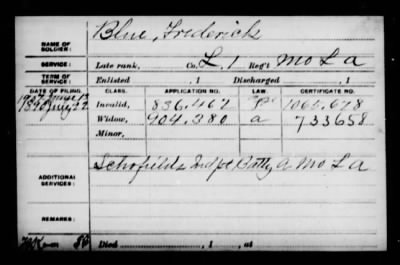 Blue, Frederick
NAME OF SOLDIER:
SERVICE: Late rank, Co. L, 1 Reg't Mo L a
TERM OF SERVICE: Enlisted , 1 Discharged , 1
DATE OF FILING. CLASS. APPLICATION NO. LAW. CERTIFICATE NO.
1890 July 22 Invalid, 836.462 1066.678
1907 June 13 Widow, 904.380 a 733658
Minor,
ADDITIONAL SERVICES: Schofields Indpt Batty a Mo L a
REMARKS:
Died , 1 , at